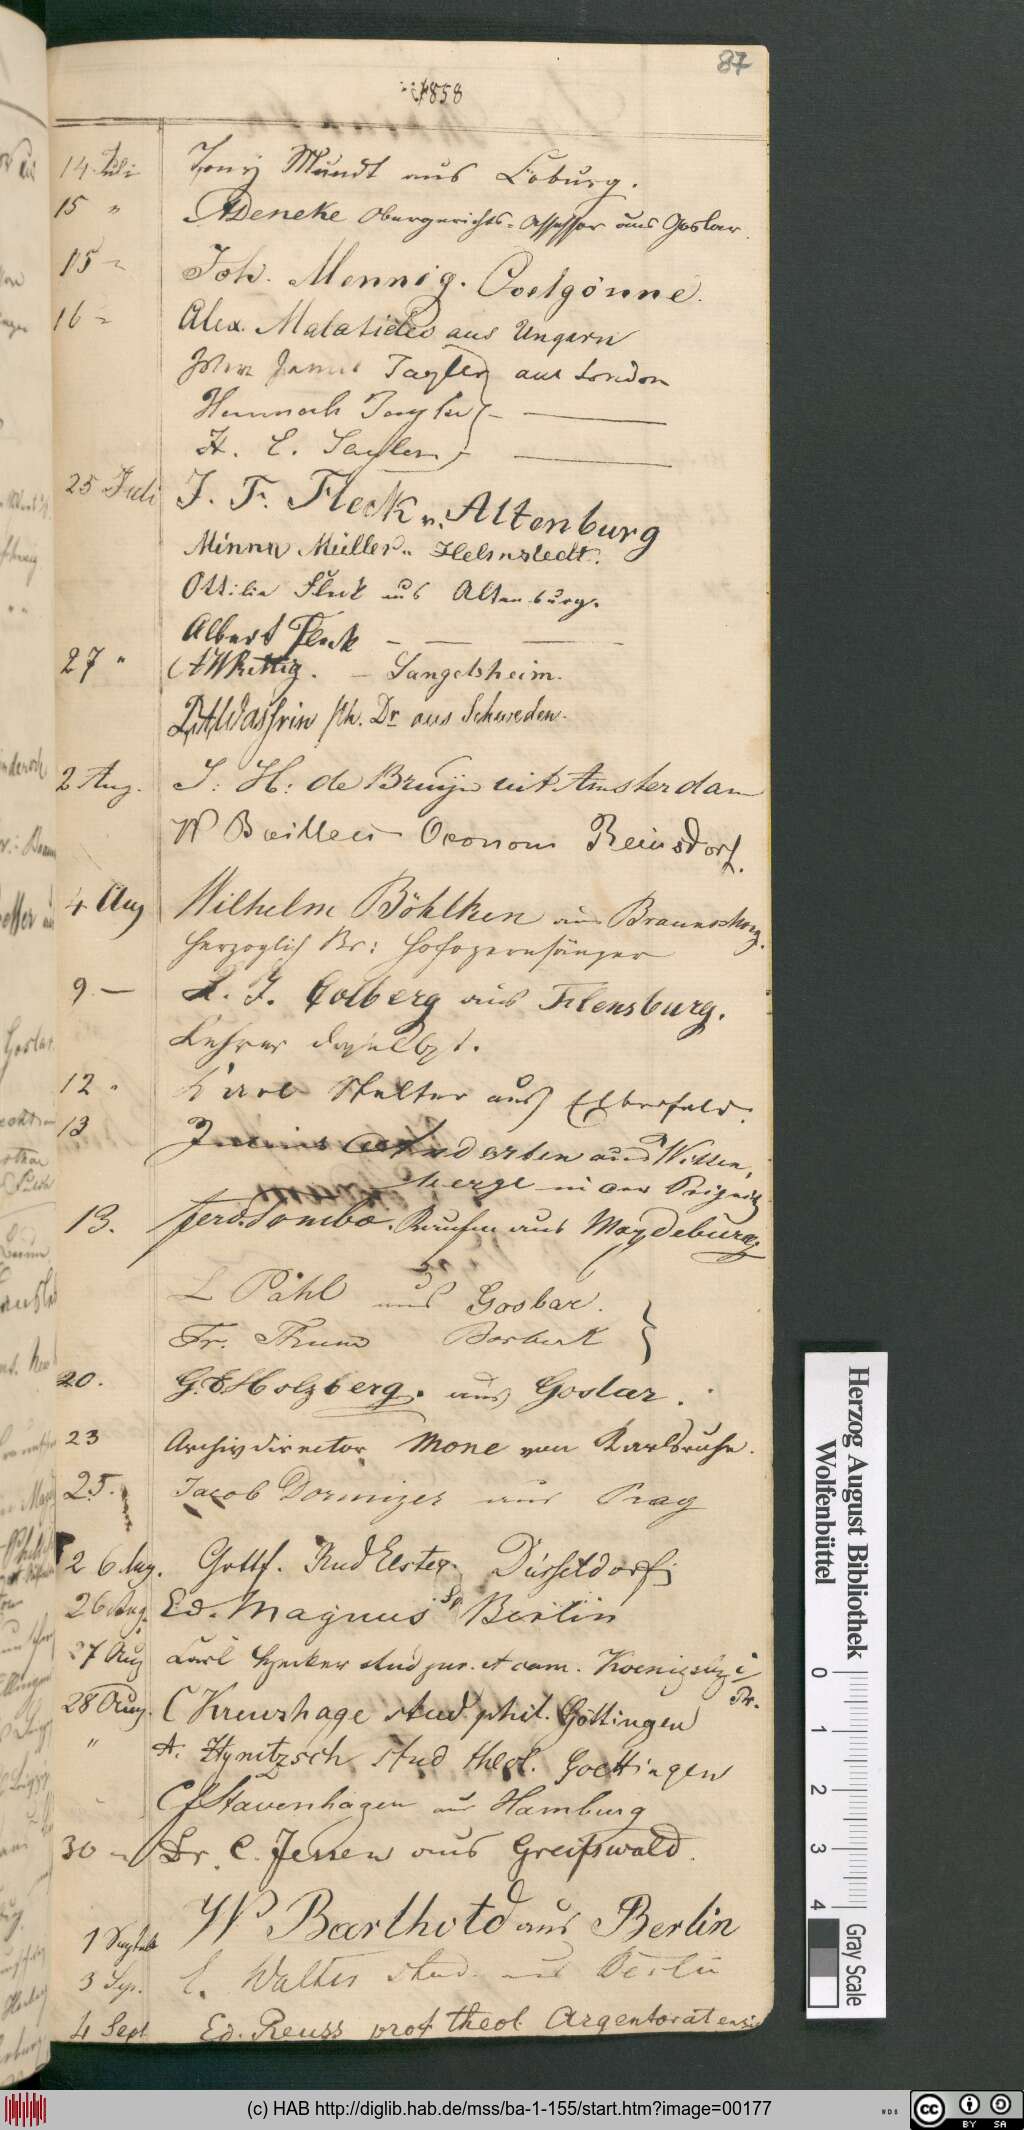 87
1858
14 Juli Tony Mundt aus Coburg.
15 " Adeneke Obergerichts-Assessor aus Goslar.
15 " Joh. Mennig. Ovelgönne.
16 " Alex. aus Ungarn
John James Tayler aus London
Hannah Tayler —
H. E. Tayler —
25 Juli J. F. Fleck v. Altenburg
Minna Müller " Helmstedt.
Ottilie Fleck aus Altenburg.
Albert Fleck — — —
27 " AW Rettig. — Langelsheim.
ph. Dr aus Schweden.
2 Aug. J: H: de Bruijn uit Amsterdam
W Oeconom Reinsdorf.
4 Aug Wilhelm Böhlken aus Braunschwg.
Herzoglich Br: Hofopernsänger
9 — L. J. Colberg aus Flensburg.
Lehrer daselbst.
12 " Karl Stelter aus Elberfeld.
13 Julius Anderten aus Witten,
berge in der Prignitz
13. Ferd. Kaufm aus Magdeburg
L Pahl aus Goslar.
Fr. Thume Borbeck }
20. Holzberg. aus Goslar.
23 Archivdirector Mone von Karlsruhe.
25. Jacob Dormizer aus Prag
26 Aug. Gottf. Rud Elster. Düsseldorf
26 Aug. Ed. Magnus Berlin
27 Aug Carl Hecker stud jur. et cam. Koenigsbg i/
Pr.
28 Aug. C Kreuzhage stud. phil. Göttingen
" A. Hynitzsch stud theol. Goettingen
CF Stavenhagen aus Hamburg
30 — Dr. C. Jessen aus Greifswald.
W Barthold aus Berlin
1 Septbr
3 Sep. E. Walter stud. aus Berlin
4 Sept Ed. Reuss prof theol Argentoratensis
Herzog August Bibliothek
Wolfenbüttel
0 1 2 3 4
Gray Scale
(c) HAB http://diglib.hab.de/mss/ba-1-155/start.htm?image=00177
WDB
cc BY SA